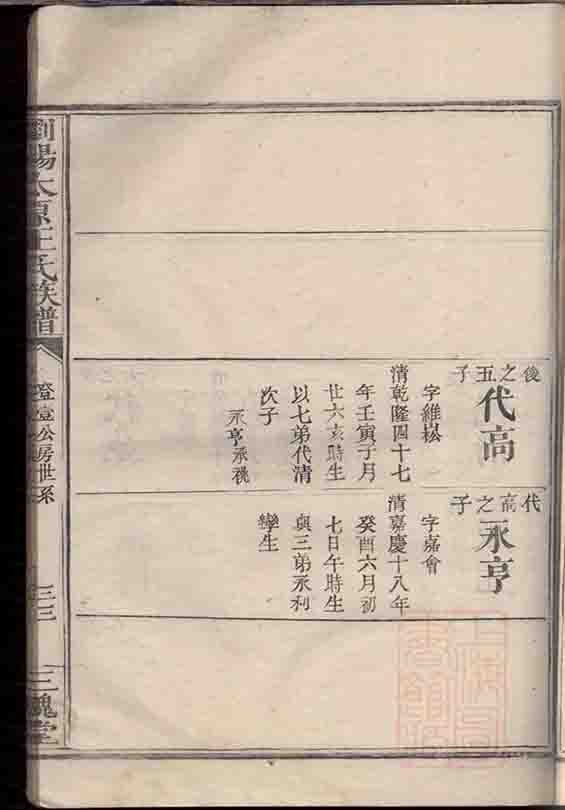 後之五子
代高
字維崧
清乾隆四十七
年壬寅子月
廿六亥時生
以七弟代清
次子
永亨承祧
代高之子
永亨
字嘉會
清嘉慶十八年
癸酉六月初
七日午時生
與三弟永利
孿生
瀏陽太原王氏族譜
登壹公房世系
三三
三槐堂
上海圖書館藏